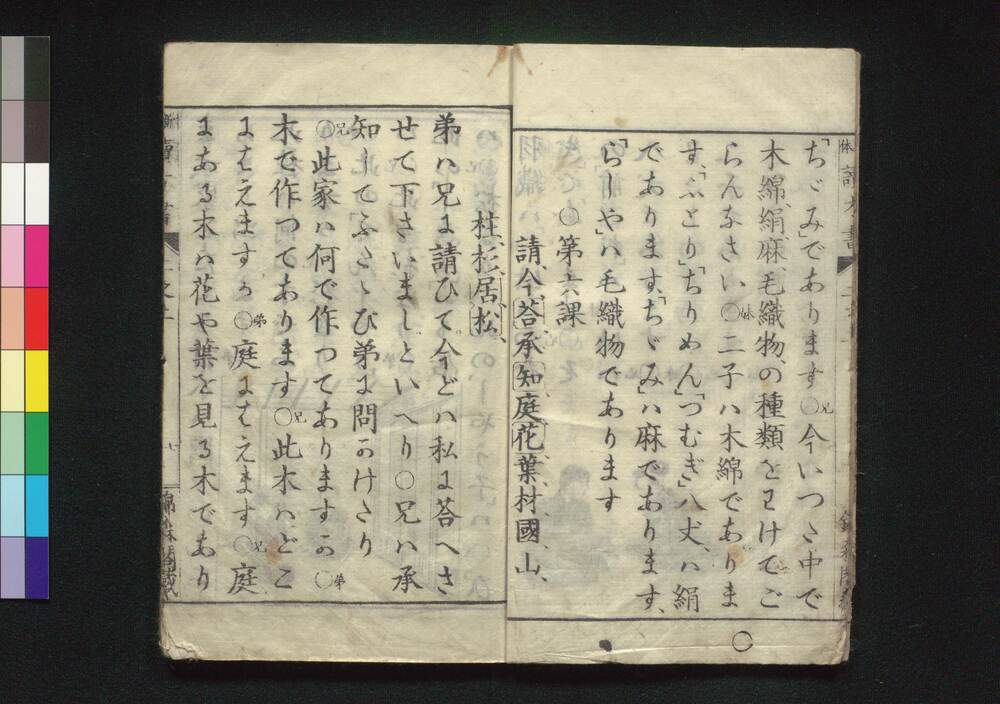 「ちゞみ」であります○兄今いつた中で
木綿、絹、麻、毛織物、の種類をわけてご
らんなさい○妹二子ハ木綿でありま
す、「ふとり」「ちりめん」「つむぎ」八丈、ハ絹
であります、「ちゞみ」ハ麻であります、
「らしや」ハ毛織物であります
○第六課
請、今、荅、承、知、庭、花、葉、材、國、山、
柱、杉、居、松、
弟ハ兄に請ひて今どハ私に荅へさ
せて下さいましといへり○兄ハ承
知してふたゝび弟に問かけたり
○兄此家ハ何で作つてありますか○弟
木で作つてあります○兄此木ハどこ
にはえますか○弟庭にはえます○兄庭
にある木ハ花や葉を見る木であり